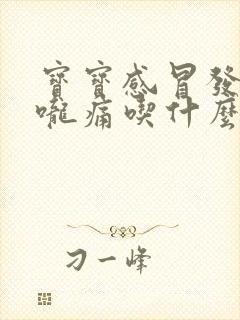 寶寶感冒發
嚨痛喫什麼
刁一峰